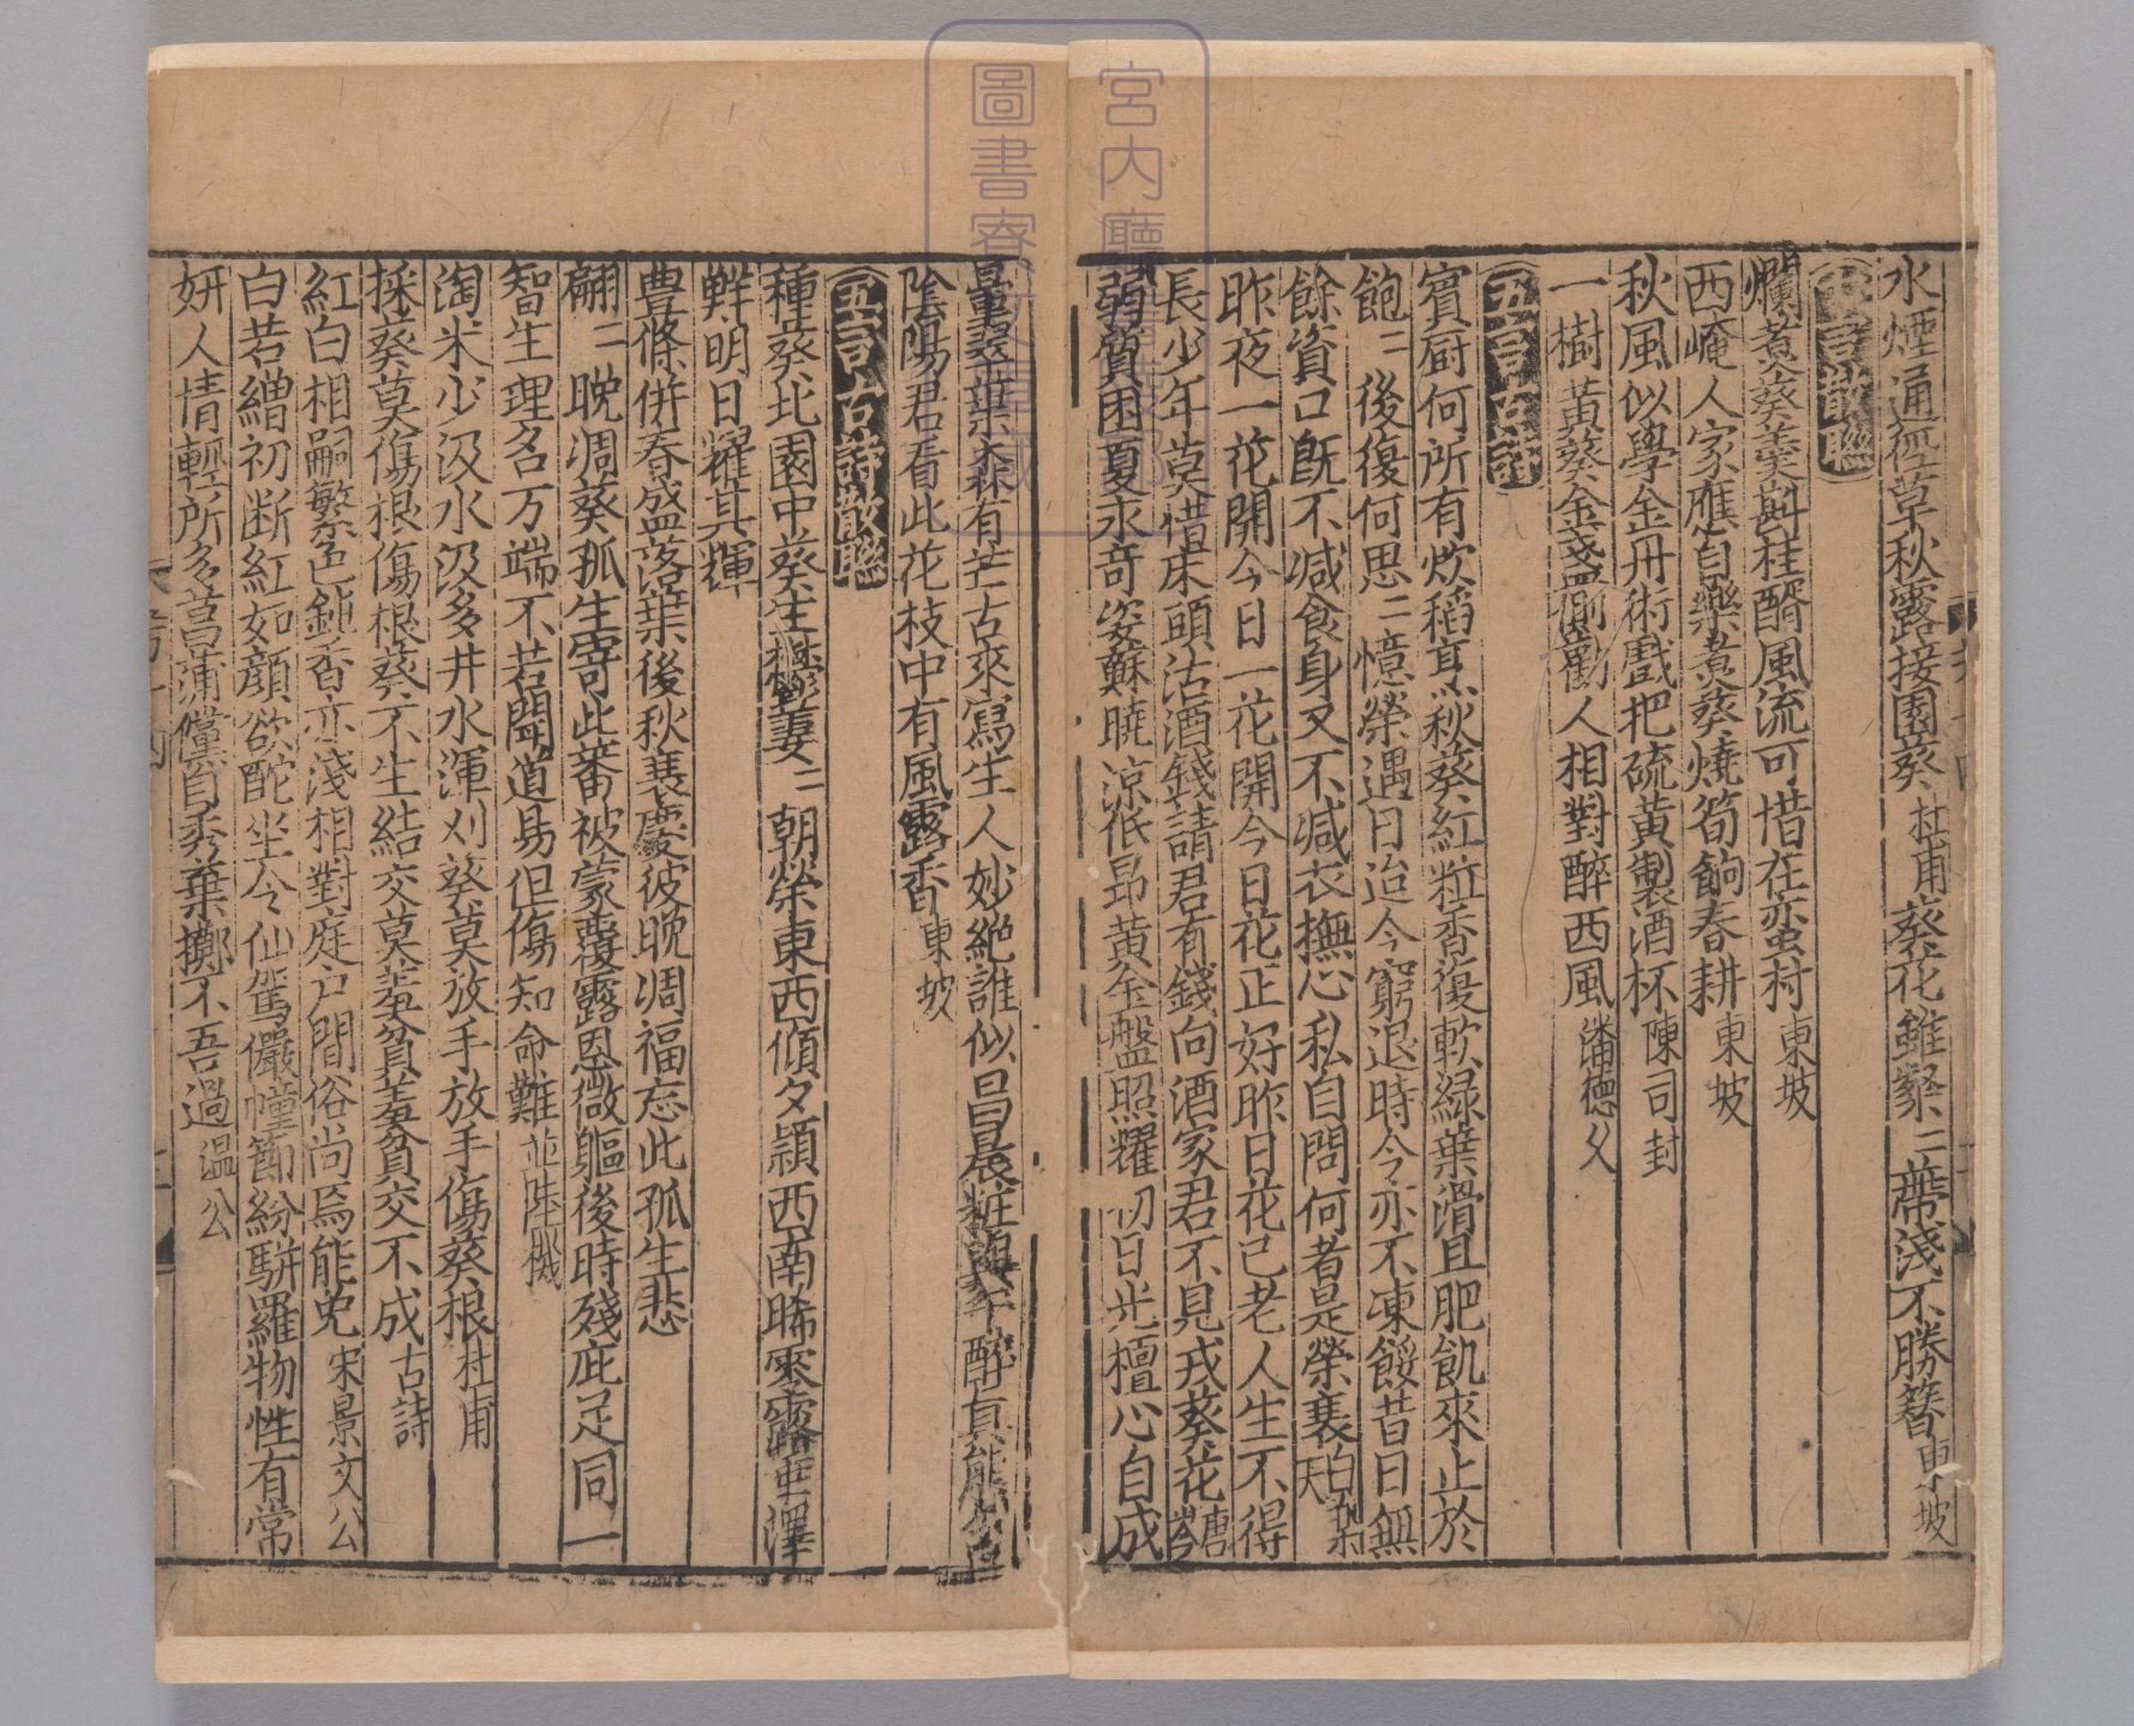 水煙通徑草秋露接園葵杜甫葵花雖粲二蔕淺不勝簪東坡
七言散聯
爛煮葵羹斟桂醑風流可惜在蛮村東坡
西崦人家應自樂煮葵燒筍餉春耕東坡
秋風似學金丹術戲把硫黄製酒杯陳司封
一樹黄葵金盞側勸人相對醉西風潘德父
五言古詩
賓厨何所有炊稻烹秋葵紅粒香復軟緑葉滑且肥飢來止於
飽二後復何思二憶榮遇日迨今窮退時今亦不凍餒昔日無
餘資口既不减食身又不减衣撫心私自問何者是榮衰白樂天
昨夜一花開今日一花開今日花正好昨日花已老人生不得
長少年莫惜床頭沽酒錢請君有錢向酒家君不見戎葵花唐岑
弱質困夏永奇姿蘇曉涼低昂黄金盤照耀初日光檀心自成
暈翠葉森有芒古來寫生人妙絶誰似昌晨粧與午醉真態含
陰陽君看此花枝中有風露香東坡
五言古詩散聯
種葵北園中葵生鬱萋二朝榮東西傾夕穎西南晞零露垂澤
鮮明日耀其輝
豊條併春盛落葉後秋衰慶彼晚凋福忘此孤生悲
翩二晚凋葵孤生寄此蕃被蒙覆露恩微軀後時殘庇足同一
智生理名万端不若聞道易但傷知命難並陸機
淘米少汲水汲多井水渾刈葵莫放手放手傷葵根杜甫
採葵莫傷根傷根葵不生結交莫羞貧羞貧交不成古詩
紅白相嗣繁色鈍香亦淺相對庭户間俗尚焉能免宋景文公
白若繒初断紅如顔欲酡坐令仙駕儼幢節紛駢羅物性有常
妍人情輕所多菖蒲儻自秀棄擲不吾過温公
宮内廳
圖書寮